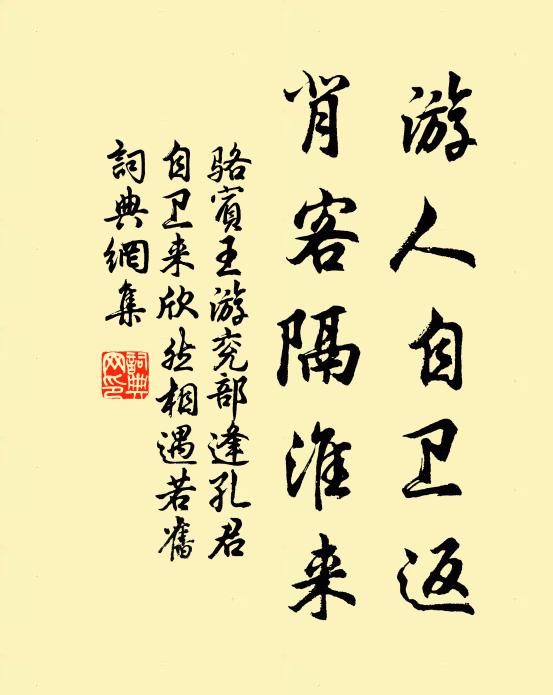 游人自卫返
背客隔淮来
骆宾王游兖部逢孔君
自卫来欣然相遇若旧
詞典網集
詞典
网印